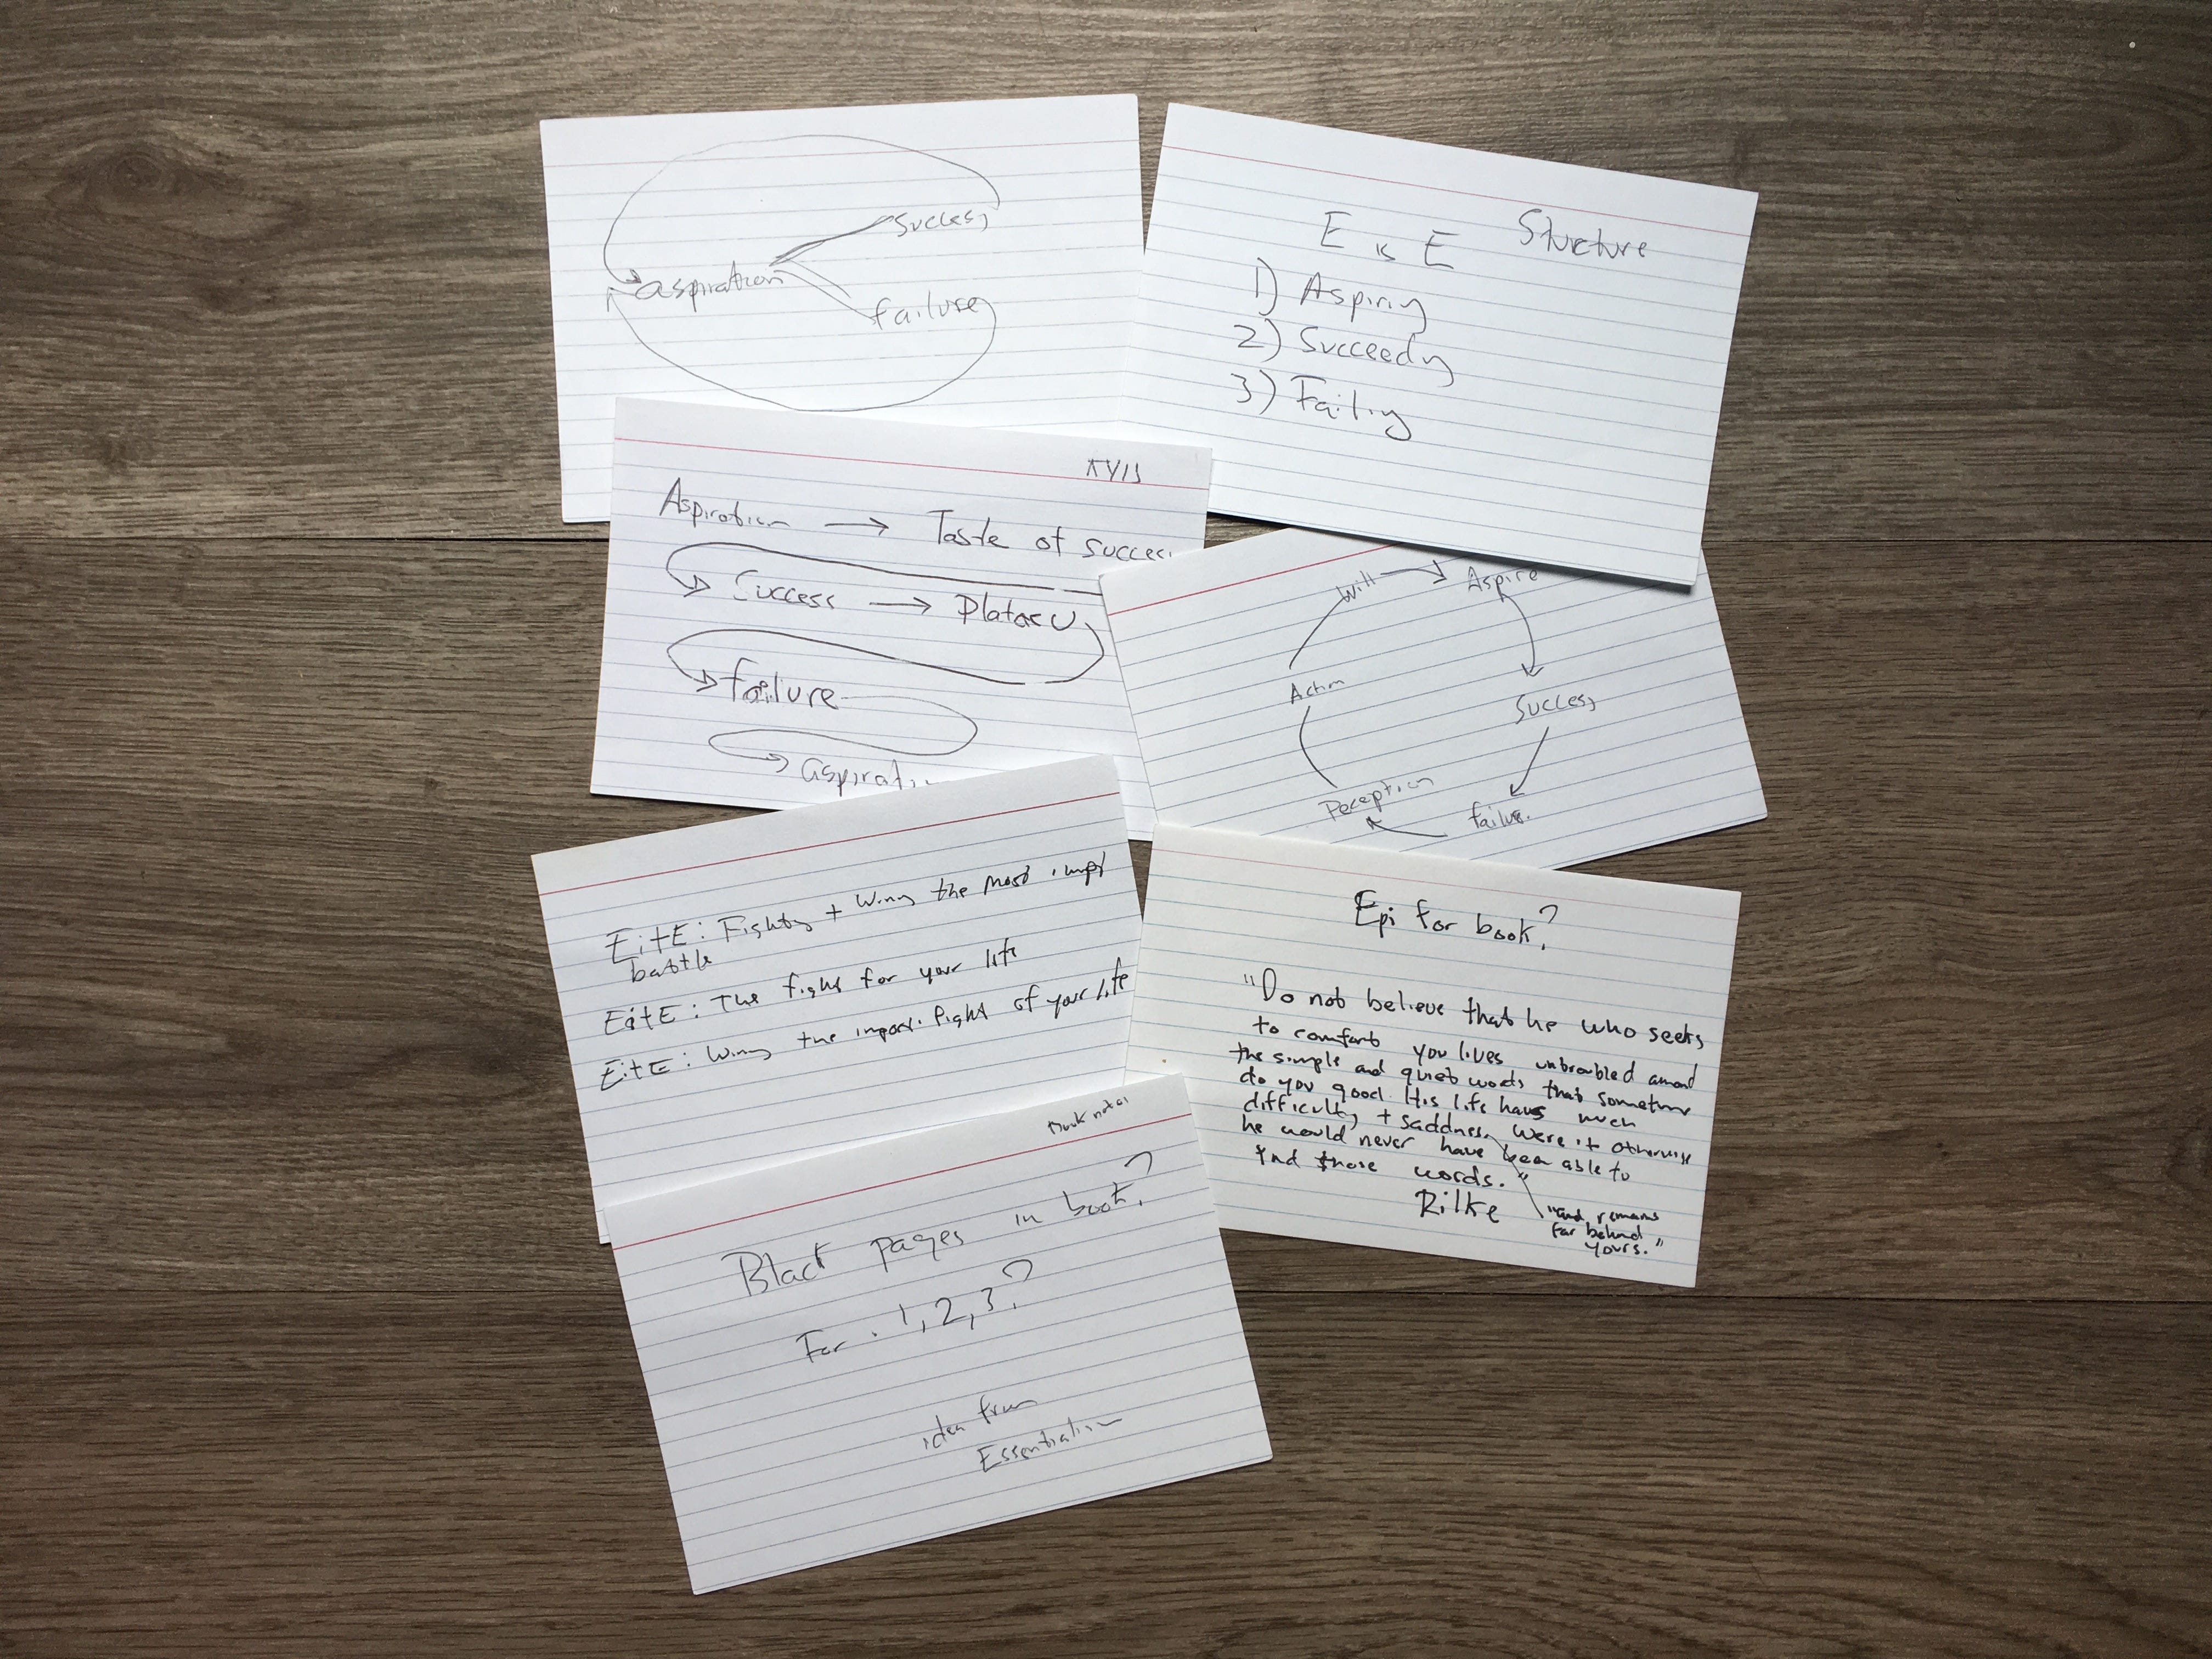 success
aspiration
failure
E is E Structure
1) Aspiring
2) Succeedg
3) Failing
Aspiration → Taste of success
Success → Plataeu
failure
aspirati
Will → Aspire
Action
Success
Perception
failure
EitE: Fightg + Winng the most impt
battle
EitE: The fight for your life
EitE: Winng the import. fight of your life
Epi for book?
"Do not believe that he who seeks
to comfort you lives untroubled among
the simple and quiet words that sometimes
do you good. His life has much
difficulty + saddness. Were it otherwise
he would never have been able to
find those words."
Rilke
"and remains
far behind
yours."
Book notes
Black pages in book?
For 1, 2, 3?
idea from
Essentialism